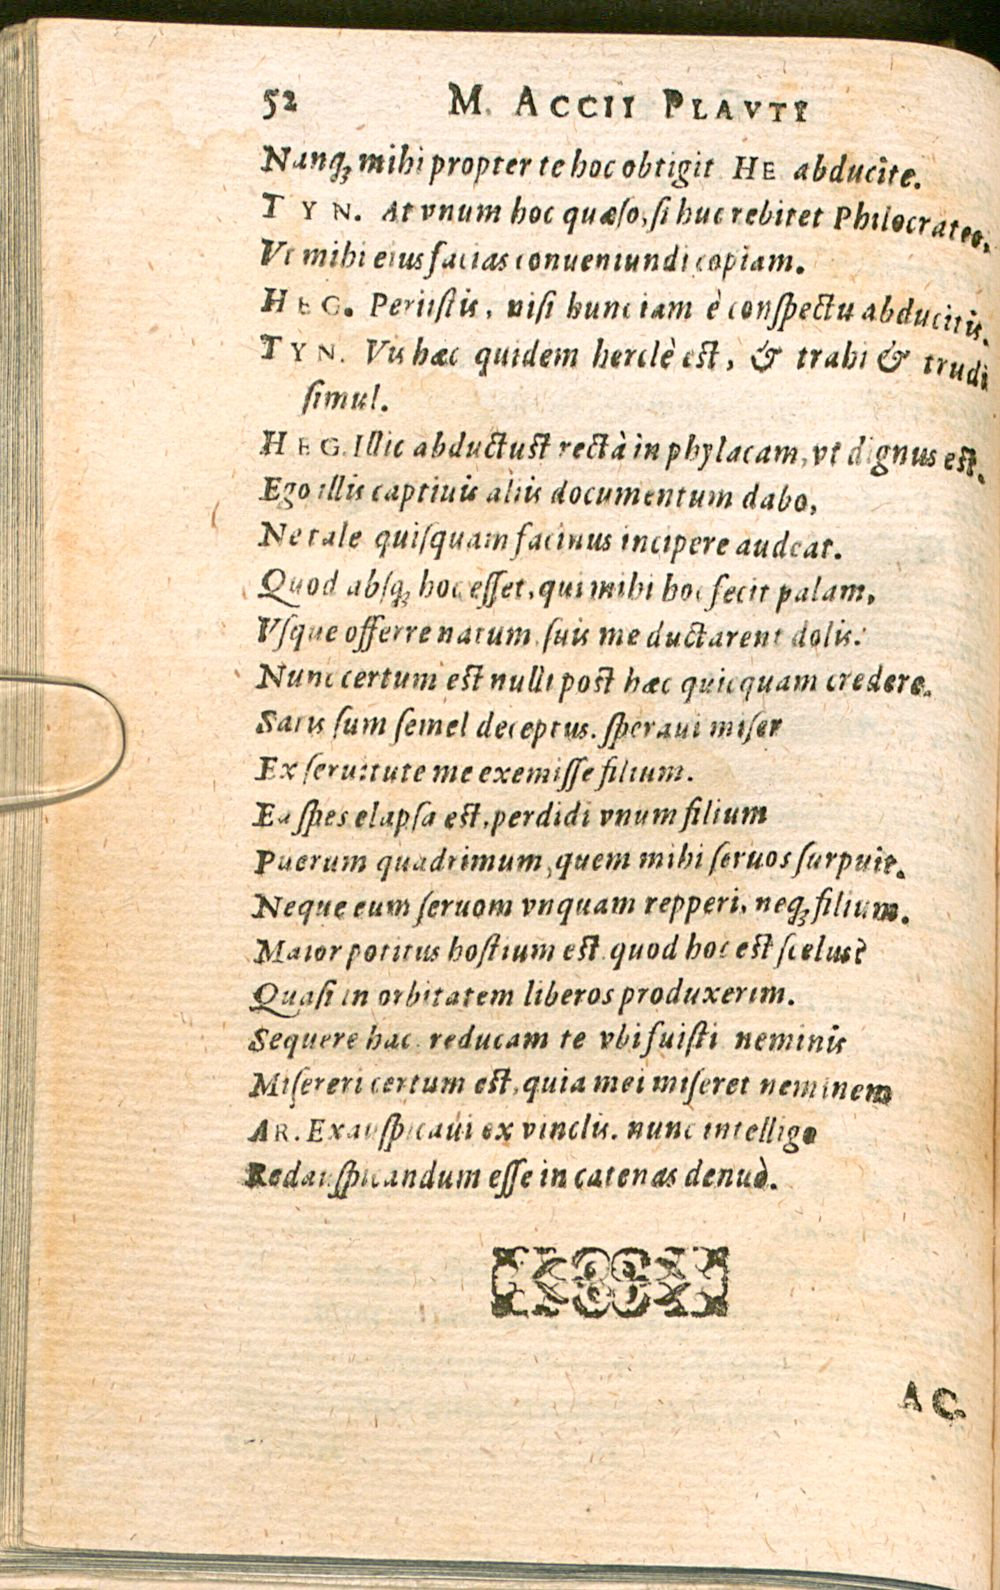 52 M. ACCII PLAVTI
Nanq; mihi propter te hoc obtigit HE abducite.
TYN. At vnum hoc quæſo, ſi huc rebitet Philocrates.
Vt mihi eius facias conueniundi copiam.
HEG. Periiſtis, niſi hunc iam è conſpectu abducitis.
TYN. Vis hæc quidem herclè est, & trahi & trudi
ſimul.
HEG. Illic abductust rectà in phylacam, vt dignus est.
Ego illis captiuis aliis documentum dabo,
Ne tale quiſquam facinus incipere audeat.
Quod abſq; hoc eſſet, qui mihi hoc fecit palam,
Vſque offerrenatum ſuis me ductarent dolis.
Nunc certum est nulli post hæc quicquam credere.
Satis ſum ſemel deceptus. ſperaui miſer
Ex ſeruitute me exemiſſe filium.
Ea ſpes elapſa est, perdidi vnum filium
Puerum quadrimum, quem mihi ſeruos ſurpuit.
Neque eum ſeruom vnquam repperi, neq; filium.
Maior potitus hoſtium est. quod hoc est ſcelus?
Quaſi in orbitatem liberos produxerim.
Sequere hac. reducam te vbi fuiſti neminis
Miſereri certum est, quia mei miſeret neminem
AR. Exauſpicaui ex vinclis. nunc intelligo
Redauſpicandum eſſe in catenas denuò.
AC.